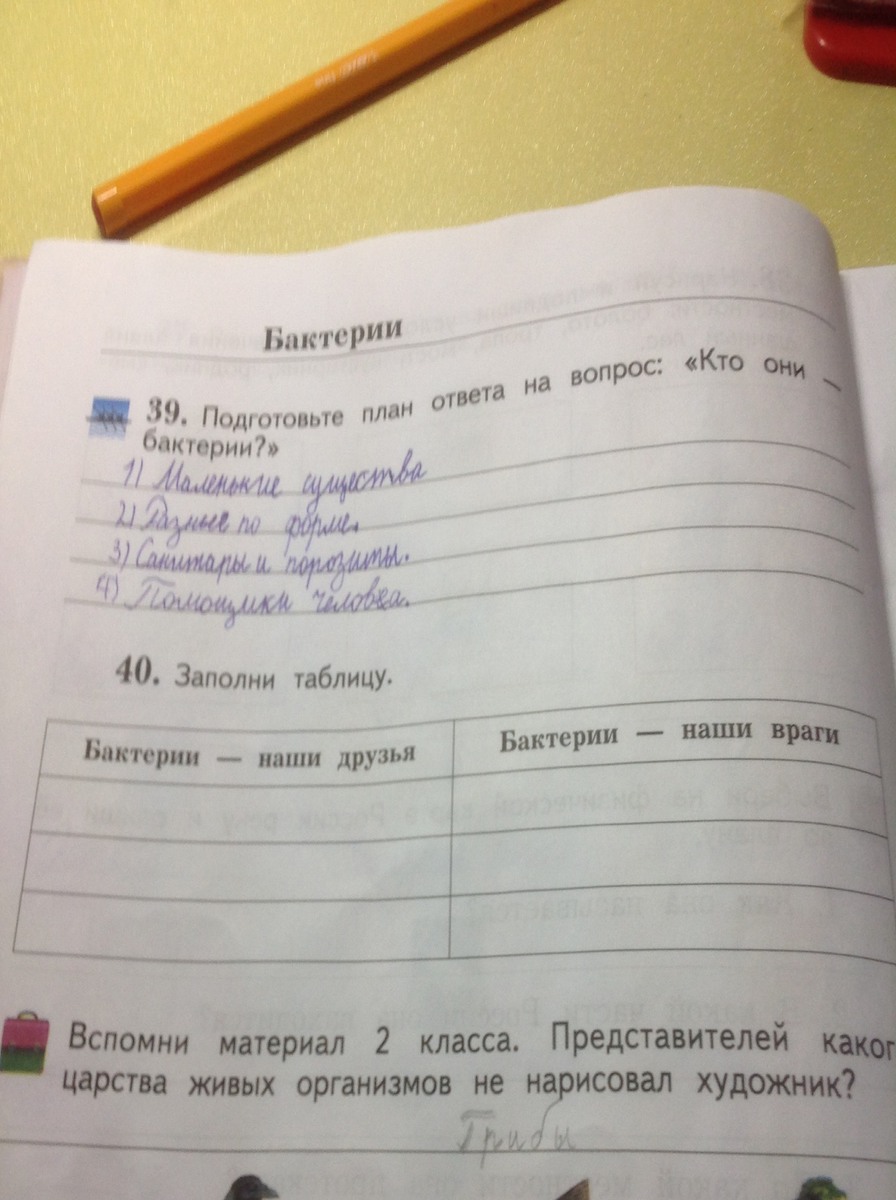 Бактерии
39. Подготовьте план ответа на вопрос: «Кто они –
бактерии?»
1) Маленькие существа
2) Разные по форме.
3) Санитары и порозиты.
4) Помощики человека.
40. Заполни таблицу.
Бактерии — наши друзья
Бактерии — наши враги
Вспомни материал 2 класса. Представителей каког
царства живых организмов не нарисовал художник?
Грибы